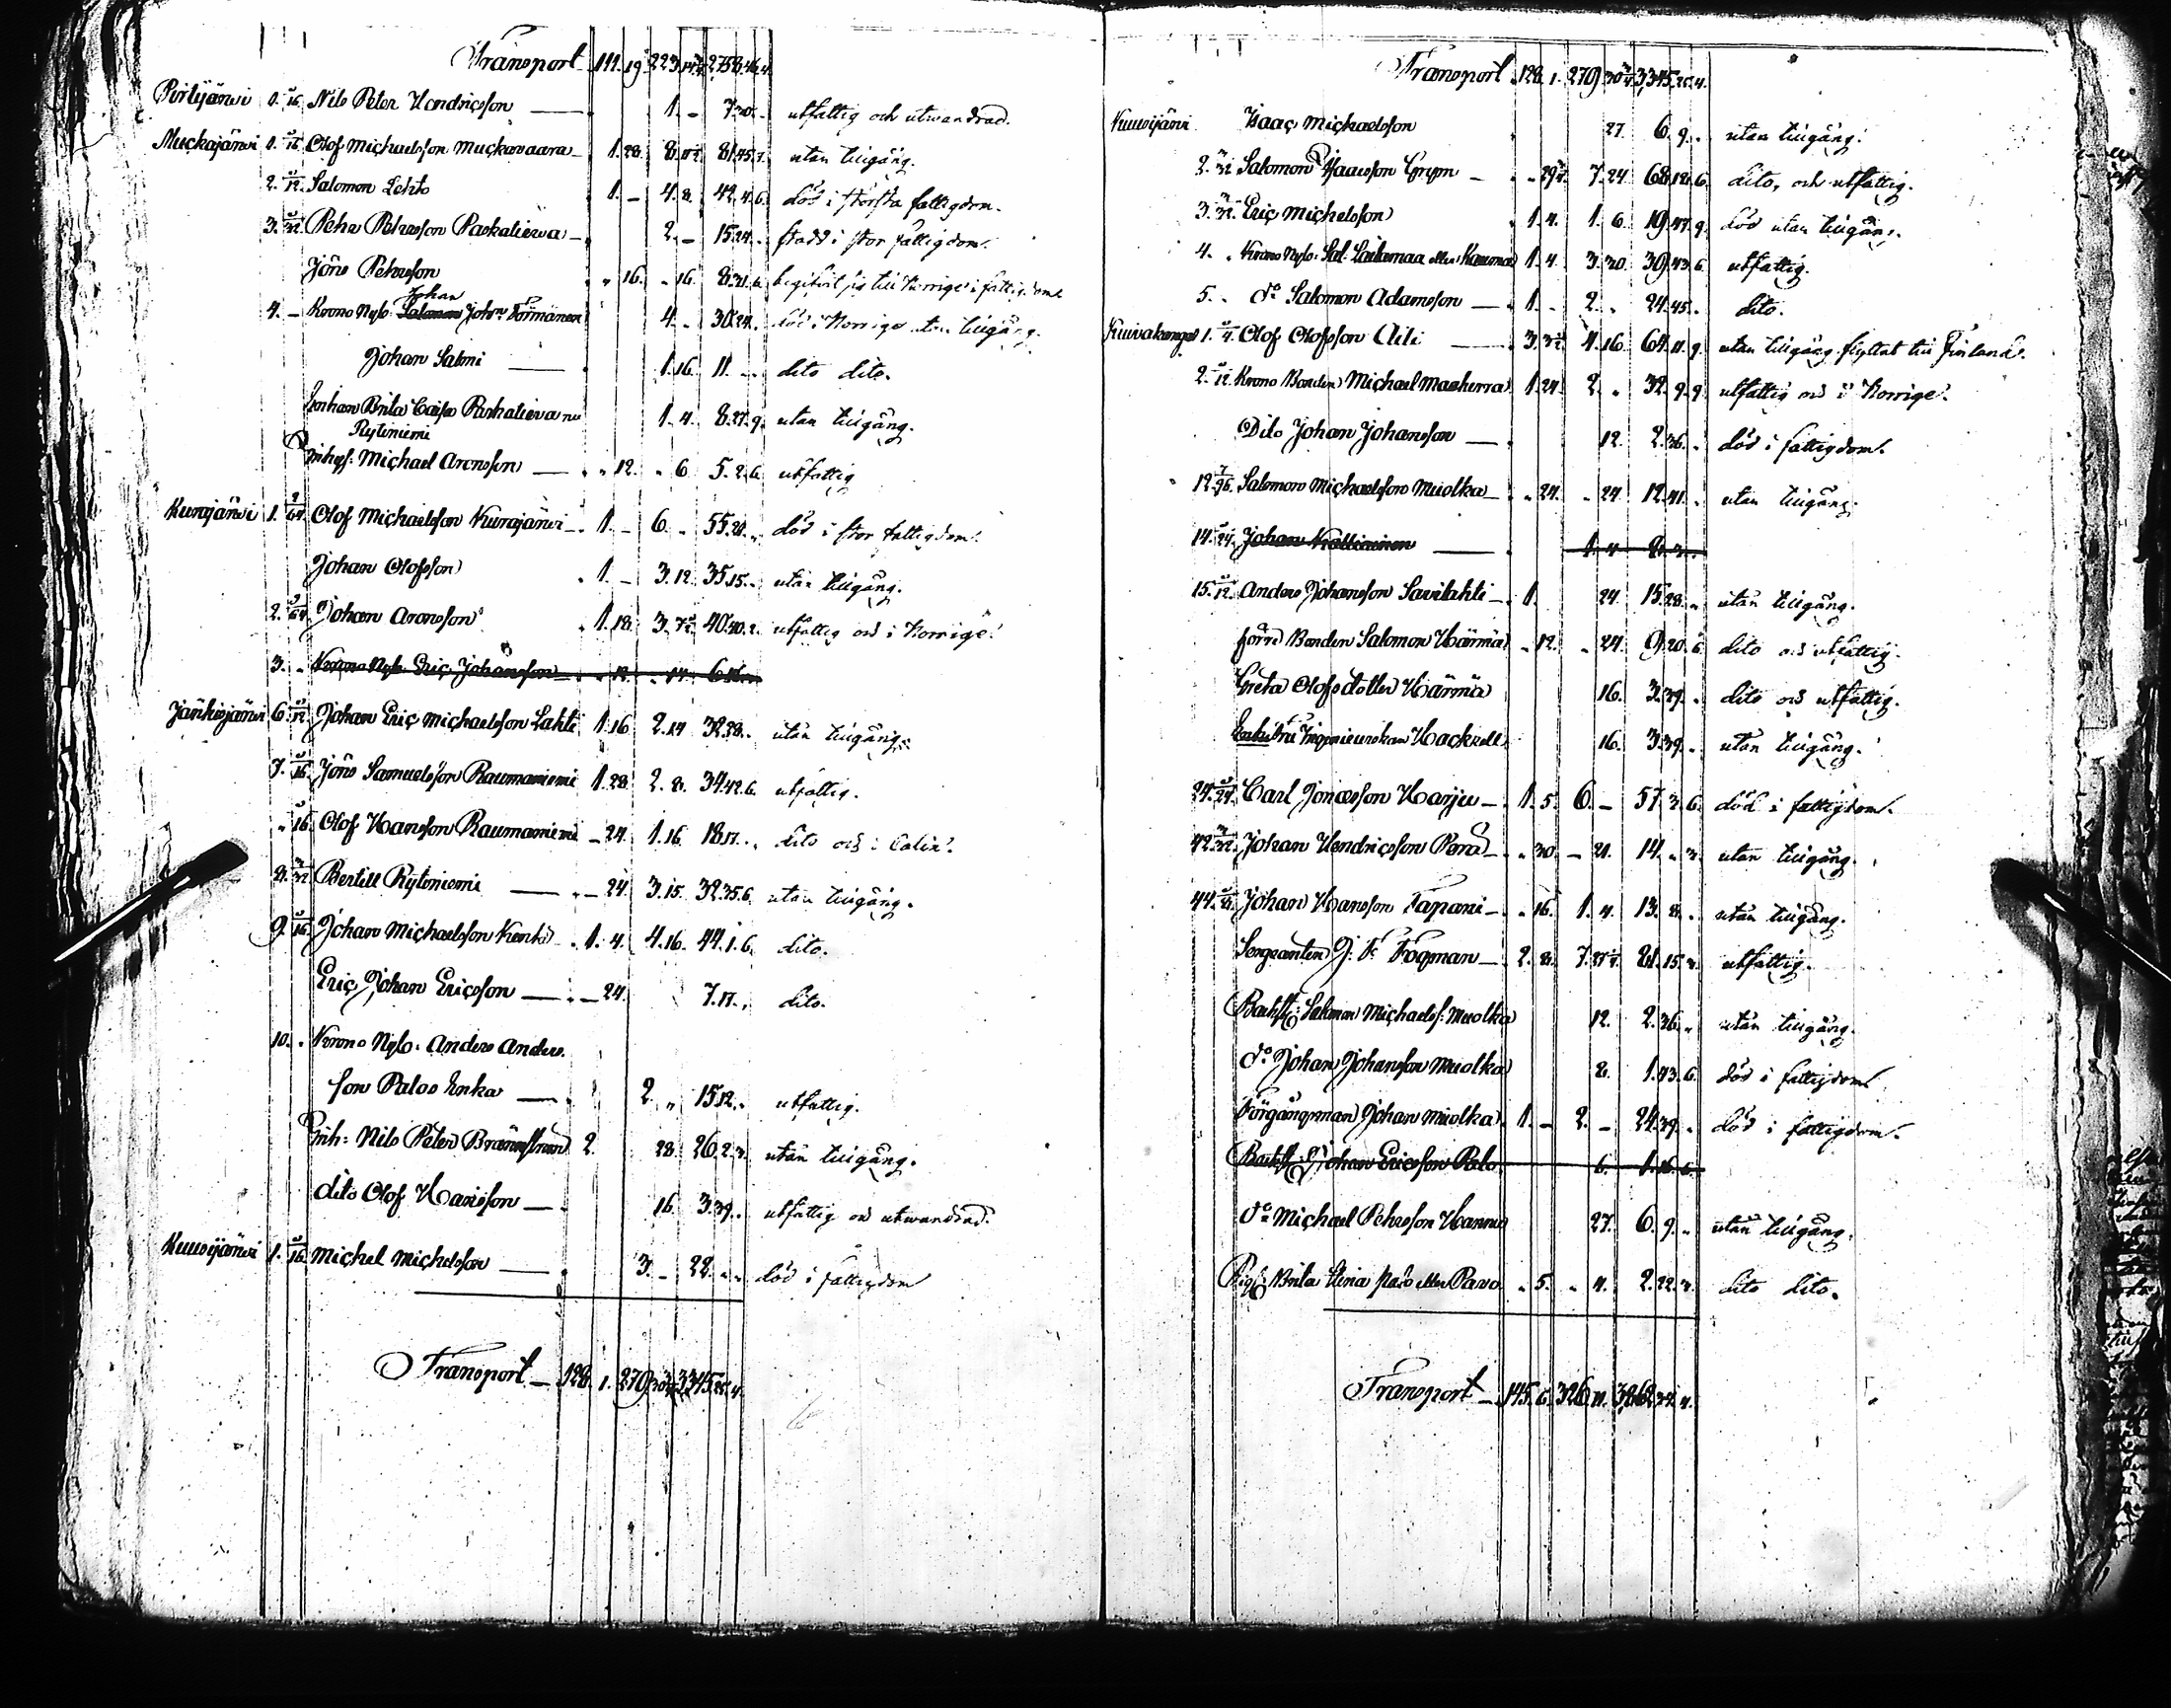 Transport 111. 19 223. 14¾ 2758. 46. 4.
Pirttijärvi 8. 1/16 Nils Peter Hendricsson — 1. - 7. 30. utfattig och utwandrad.
Muckajärwi 1. 1/16 Olof Michaelsson Muckavaara - 1. 28. 8. 81. 45. utan tillgång.
2. 1/12 Salomon Lehto 1. - 4. 8. 42. 4. 6. död i största fattigdom.
3. Pehr Pehrsson Paskalieva - 2. - 15. 24. stadd i stor fattigdom.
Jöns Pehrsson " 16. " 16. 8. 21. 6. begifvit sig till Norrige i fattigdom
Johan
4. - Krono Nyb: Salomon Johns Törmänen 4. - 30. 24. död i Norrige utan tillgång.
Johan Salmi — 1. 16. 11. dito dito.
Enkan Brita Caisa Paskalieva nu 1. 4. 8. 27. 9. utan tillgång.
Rytiniemi
Inhys: Michael Aronsson — " 12. " 6. 5. 2. 6. utfattig
Kurajärwi 1. 9/64 Olof Michaelsson Kurajärwi - 1. - 6. " 55. 21. död i stor fattigdom.
Johan Olofsson 1. - 3. 12. 35. 15. utan tillgång.
2. 9/64 Johan Aronsson 1. 18. 3. 7½ 40. 40. 2. utfattig och i Norrige.
3. " Krono Nyb. Eric Johansson " 12. " 14. 6.
Jänkisjärwi 6. 1/12 Johan Eric Michaelsson Lahti 1. 16 2. 14 32. 38. utan tillgång.
7. 1/16 Jöns Samuelsson Raumaniemi 1. 28. 2. 8. 34. 42. 6. utfattig.
" 1/16 Olof Hansson Raumaniemi - 24. 1. 16. 18. 17. dito och i Calix.
8. 3/32 Bertill Rytiniemi — - 24. 3. 15. 32. 35. 6. utan tillgång.
9. 1/16 Johan Michaelsson Kenttä 1. 4. 4. 16. 44. 1. 6. dito.
Eric Johan Ericsson — - 24. 7. 17. dito.
10. " Krono Nyb. Anders Anders
son Palos Enka — 2. " 15. 12. utfattig.
Inh: Nils Peter Brännström 2. 28. 26. 2. 3. utan tillgång.
dito Olof Hansson — 16. 3. 39. utfattig och utwandrad.
Kuusijärwi 1. 1/16 Michel Michelsson — 3. - 22. död i fattigdom
Transport - 128. 1. 279. 30¾ 3345. 25. 4.
Transport 128. 1. 279 30¾ 3345. 25. 4.
Kuusijärvi Isaac Michaelsson 27. 6. 9. utan tillgång.
2. 3/32 Salomon Isaacsson Grym - " 29¾ 7. 24. 68. 18. 6. dito, och utfattig.
3. 3/32 Eric Michelsson 1. 4. 1. 6. 19. 47. 9. död utan tillgång.
4. " Krono Nyb: Sal: Laitamaa eller Kauma 1. 4. 3. 30. 39. 43. 6. utfattig.
5. " do Salomon Adamsson — 1. - 2. " 24. 45. dito.
Kuivakangas 1. 1/4 Olof Olofsson Aili — 3. 4. 16. 64. 11. 9. utan tillgång flyttat till Finland.
2. 1/12 Krono Bonden Michael Maaherra 1. 24. 2. " 32. 9. 9. utfattig och i Norrige.
Dito Johan Johansson — 12. 2. 36. död i fattigdom.
12. 7/96 Salomon Michaelsson Muolka - " 24. " 24. 12. 41. utan tillgång.
14. 1/24 Johan — 1. 4. 8.
15. 1/12 Anders Johansson Savilahti - 1. 24. 15. 28. utan tillgång.
förra Bonden Salomon Härmä " 12. " 24. 9. 20. 6. dito och utfattig.
Greta Olofsdotter Härmä 16. 3. 39. dito och utfattig.
Enkefru Ingenieurskan Hackzell 16. 3. 39. utan tillgång.
24. 1/24 Carl Jonasson Harju - 1. 5. 6. - 57. 3. 6. död i fattigdom.
42. 3/32 Johan Hendricsson Perä - " 30. - 21. 14. " 3. utan tillgång.
44. Johan Hansson Tapani - " 16. 1. 4. 13. 8. utan tillgång.
Sergeanten J. F. Fogman - 2. 8. 7. 81. 15. utfattig.
Backst: Salomon Michaels: Muolka 12. 2. 36. utan tillgång.
do Johan Johansson Muolka 8. 1. 43. 6. död i fattigdom
Förgångsman Johan Muolka 1. - 2. - 24. 39. död i fattigdom.
Backst: Johan Ericsson Palo 6. 1. 16. 6.
do Michael Pehrsson Hannu 27. 6. 9. utan tillgång.
Pig: Brita Elena Paso eller Pavo " 5. " 4. 2. 22. 3. dito dito.
Transport - 145. 6. 326. 11. 3862. 32. 4.